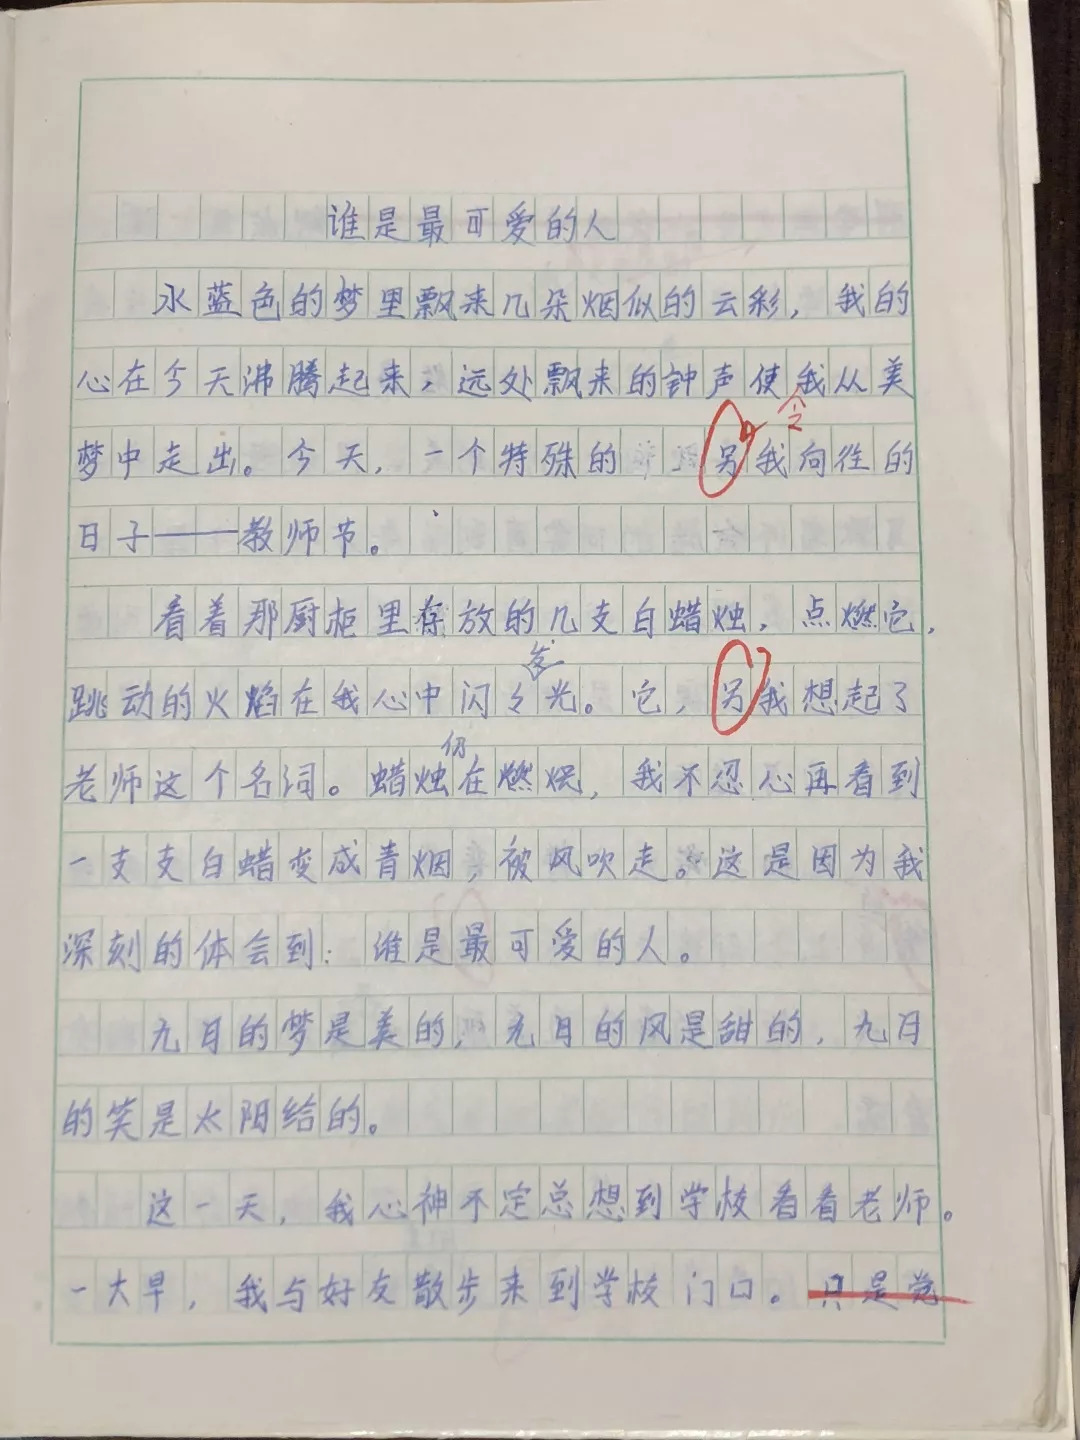 谁是最可爱的人
水蓝色的梦里飘来几朵烟似的云彩，我的
心在今天沸腾起来，远处飘来的钟声使我从美
令
梦中走出。今天，一个特殊的 另我向往的
日子——教师节。
看着那厨柜里存放的几支白蜡烛，点燃它，
发
跳动的火焰在我心中闪々光。它，另我想起了
仍
老师这个名词。蜡烛在燃烧，我不忍心再看到
一支支白蜡变成青烟，被风吹走。这是因为我
深刻的体会到：谁是最可爱的人。
九月的梦是美的，九月的风是甜的，九月
的笑是太阳给的。
这一天，我心神不定总想到学校看看老师。
一大早，我与好友散步来到学校门口。只是觉